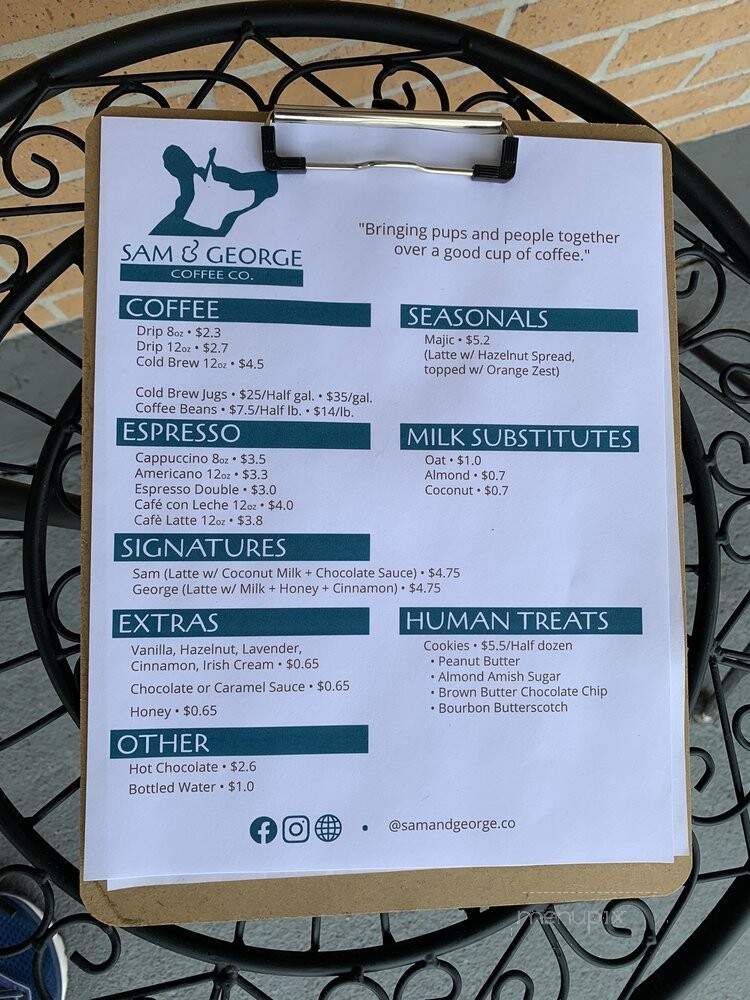 SAM & GEORGE
COFFEE CO.
"Bringing pups and people together
over a good cup of coffee."
COFFEE
Drip 8oz • $2.3
Drip 12oz • $2.7
Cold Brew 12oz • $4.5
Cold Brew Jugs • $25/Half gal. • $35/gal.
Coffee Beans • $7.5/Half lb. • $14/lb.
SEASONALS
Majic • $5.2
(Latte w/ Hazelnut Spread,
topped w/ Orange Zest)
ESPRESSO
Cappuccino 8oz • $3.5
Americano 12oz • $3.3
Espresso Double • $3.0
Café con Leche 12oz • $4.0
Cafè Latte 12oz • $3.8
MILK SUBSTITUTES
Oat • $1.0
Almond • $0.7
Coconut • $0.7
SIGNATURES
Sam (Latte w/ Coconut Milk + Chocolate Sauce) • $4.75
George (Latte w/ Milk + Honey + Cinnamon) • $4.75
EXTRAS
Vanilla, Hazelnut, Lavender,
Cinnamon, Irish Cream • $0.65
Chocolate or Caramel Sauce • $0.65
Honey • $0.65
HUMAN TREATS
Cookies • $5.5/Half dozen
• Peanut Butter
• Almond Amish Sugar
• Brown Butter Chocolate Chip
• Bourbon Butterscotch
OTHER
Hot Chocolate • $2.6
Bottled Water • $1.0
• @samandgeorge.co
menupix